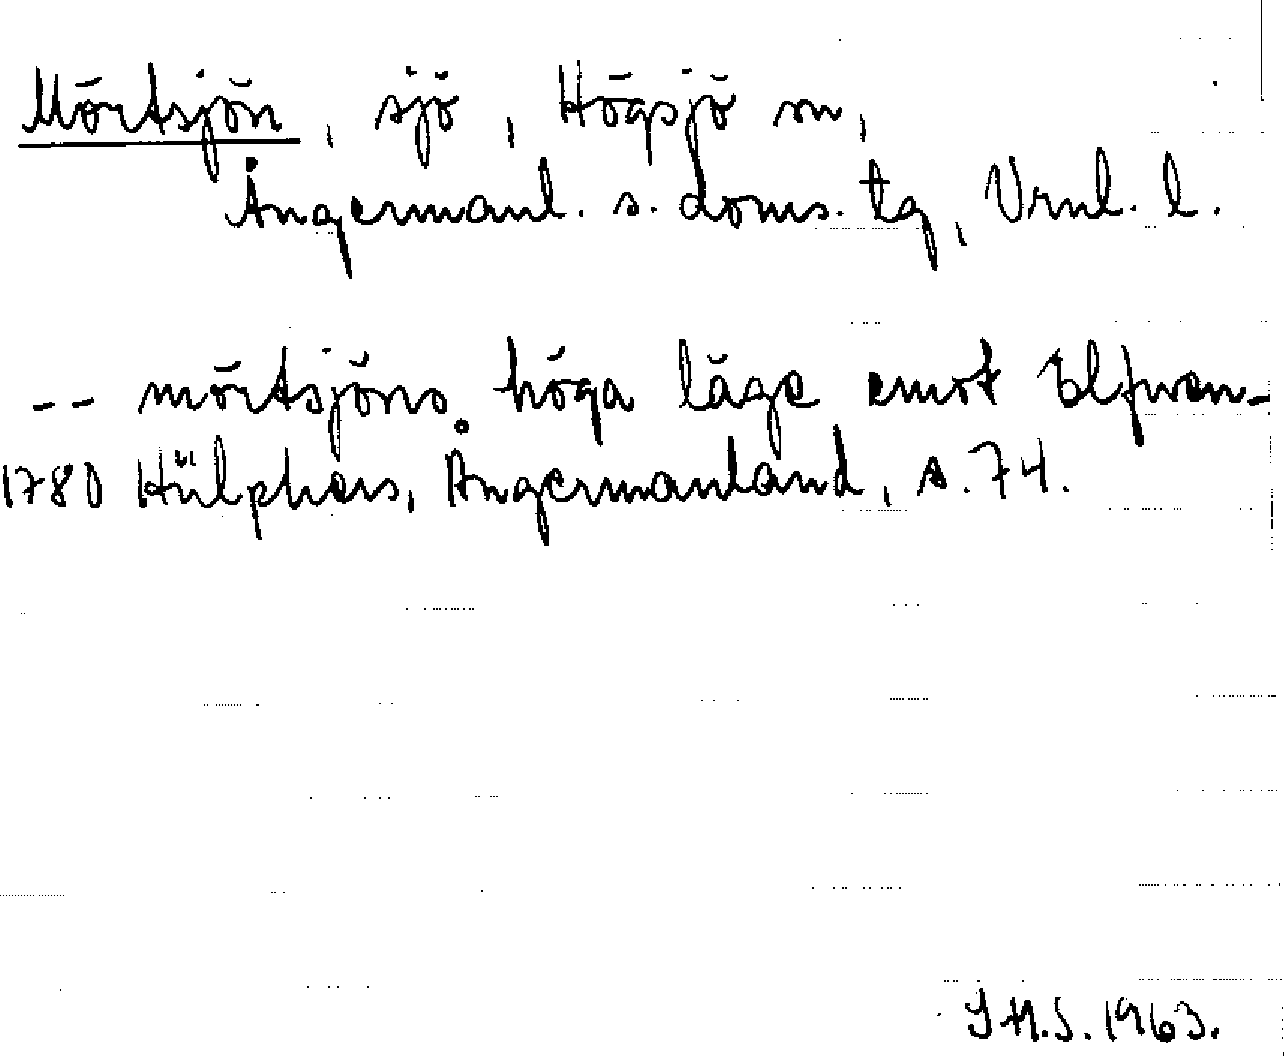 Mörtsjön, sjö, Högsjö sn,
Ångermanl. s. doms. tg, Vrnl. l.
-- mörtsjöns höga läge emot Elfwen-
1780 Hülphers, Ångermanland, s. 74.
J H.S. 1963.